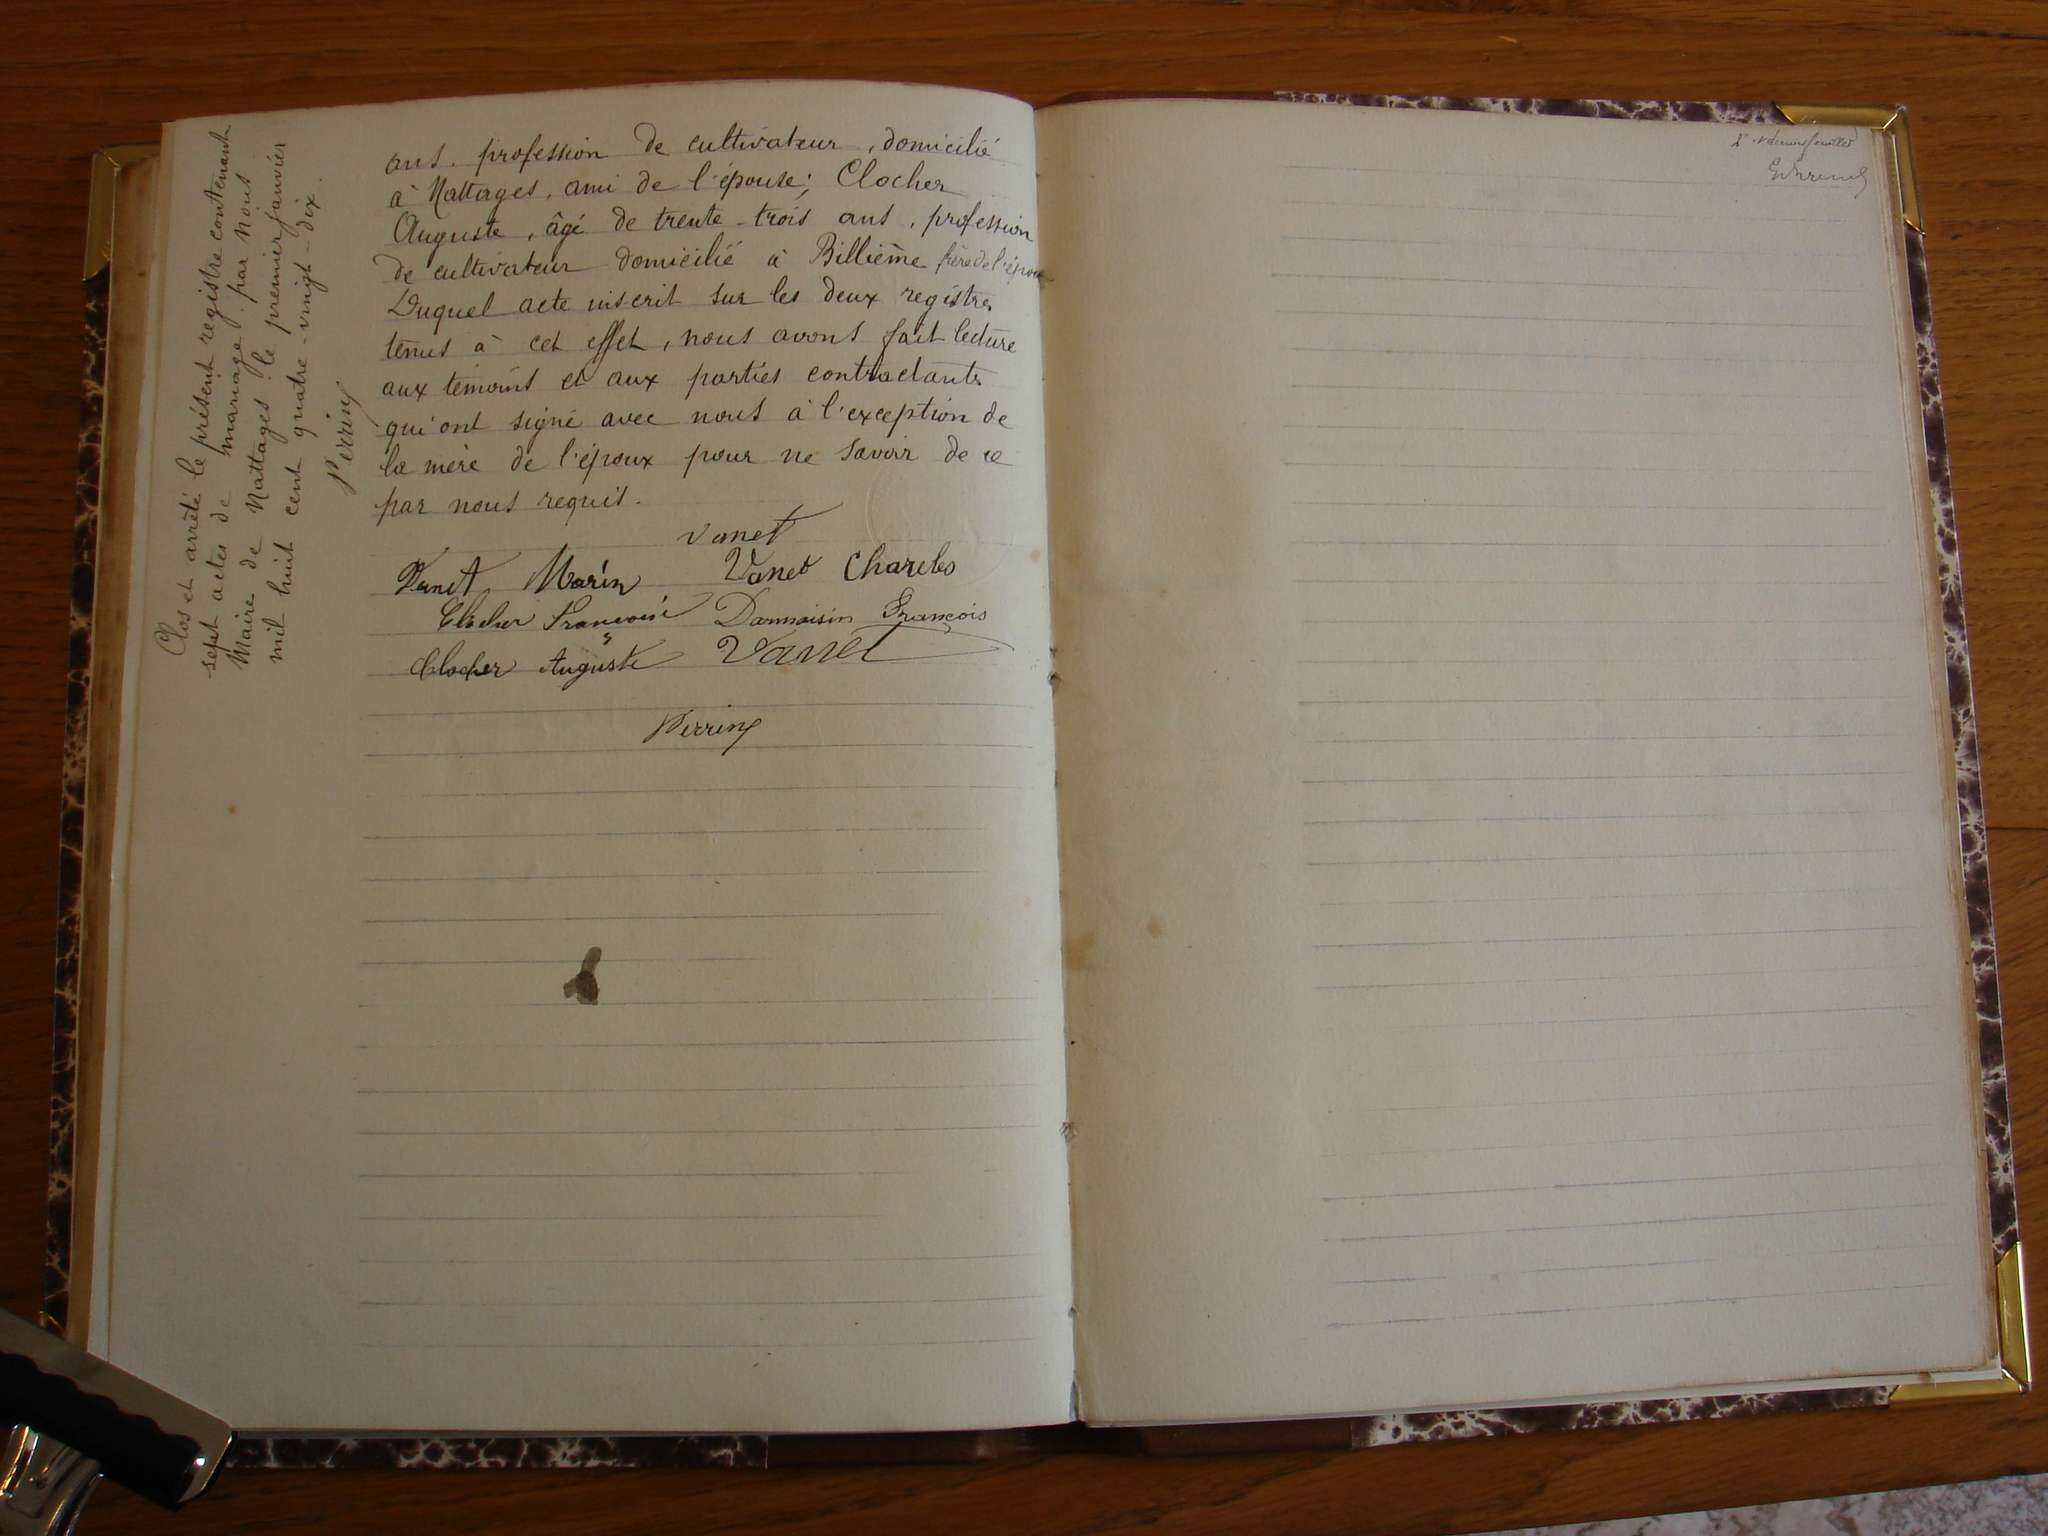 ans. profession de cultivateur, domicilié
à Nattages, ami de l'épouse; Clocher
Auguste, âgé de trente-trois ans, profession
de cultivateur domicilié à Billième frère de l'épouse
Duquel acte inscrit sur les deux registres
tenus à cet effet, nous avons fait lecture
aux temoins et aux parties contractants
qui ont signé avec nous à l'exception de
la mère de l'époux pour ne savoir de ce
par nous requis.
Vanet
Vanet Marin Vanet Charles
Clocher François Dammaisin François
Clocher Auguste Vanet
Perrin
Clos et arrêté le présent registre contenant
sept actes de mariage. par nous
Maire de Nattages le premier janvier
mil huit cent quatre-vingt-dix.
Perrin
feuillet